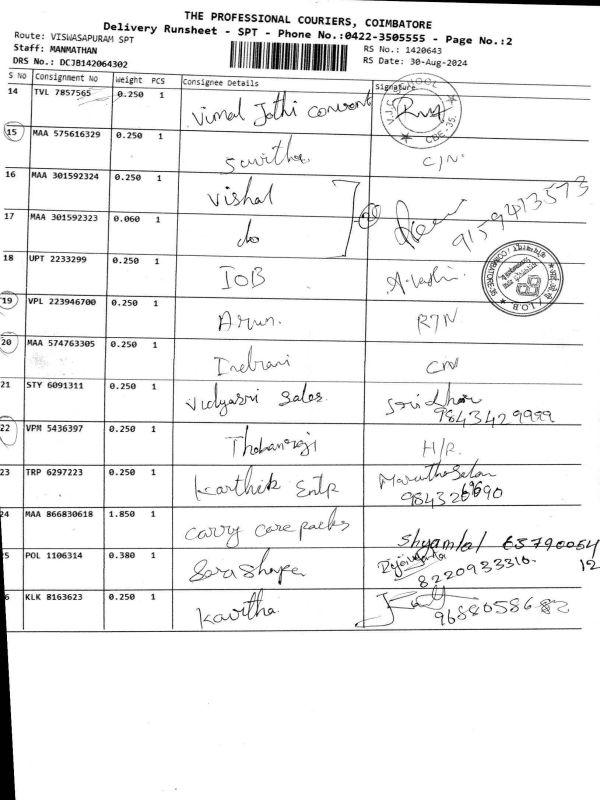 THE PROFESSIONAL COURIERS, COIMBATORE
Delivery Runsheet - SPT - Phone No.:0422-3505555 - Page No.:2
Route: VISWASAPURAM SPT
Staff: MANMATHAN RS No.: 1420643
DRS No.: DCJB142064302 RS Date: 30-Aug-2024
S No Consignment No Weight PCS Consignee Details Signature
14 TVL 7857565 0.250 1 Vimal Jothi convent
15 MAA 575616329 0.250 1 Savitha C/N
16 MAA 301592324 0.250 1 Vishal
17 MAA 301592323 0.060 1 do 9159413573
18 UPT 2233299 0.250 1 IOB
19 VPL 223946700 0.250 1 Arun. R7N
20 MAA 574763305 0.250 1 Indrani CN
21 STY 6091311 0.250 1 Vidyasri Sales. Sridhar
9843429999
22 VPM 5436397 0.250 1 H/R.
23 TRP 6297223 0.250 1 Karthik Entp
24 MAA 866830618 1.850 1 Carry Care packs Shyamlal 63790054
12
5 POL 1106314 0.380 1 8220933310.
6 KLK 8163623 0.250 1 Kavitha